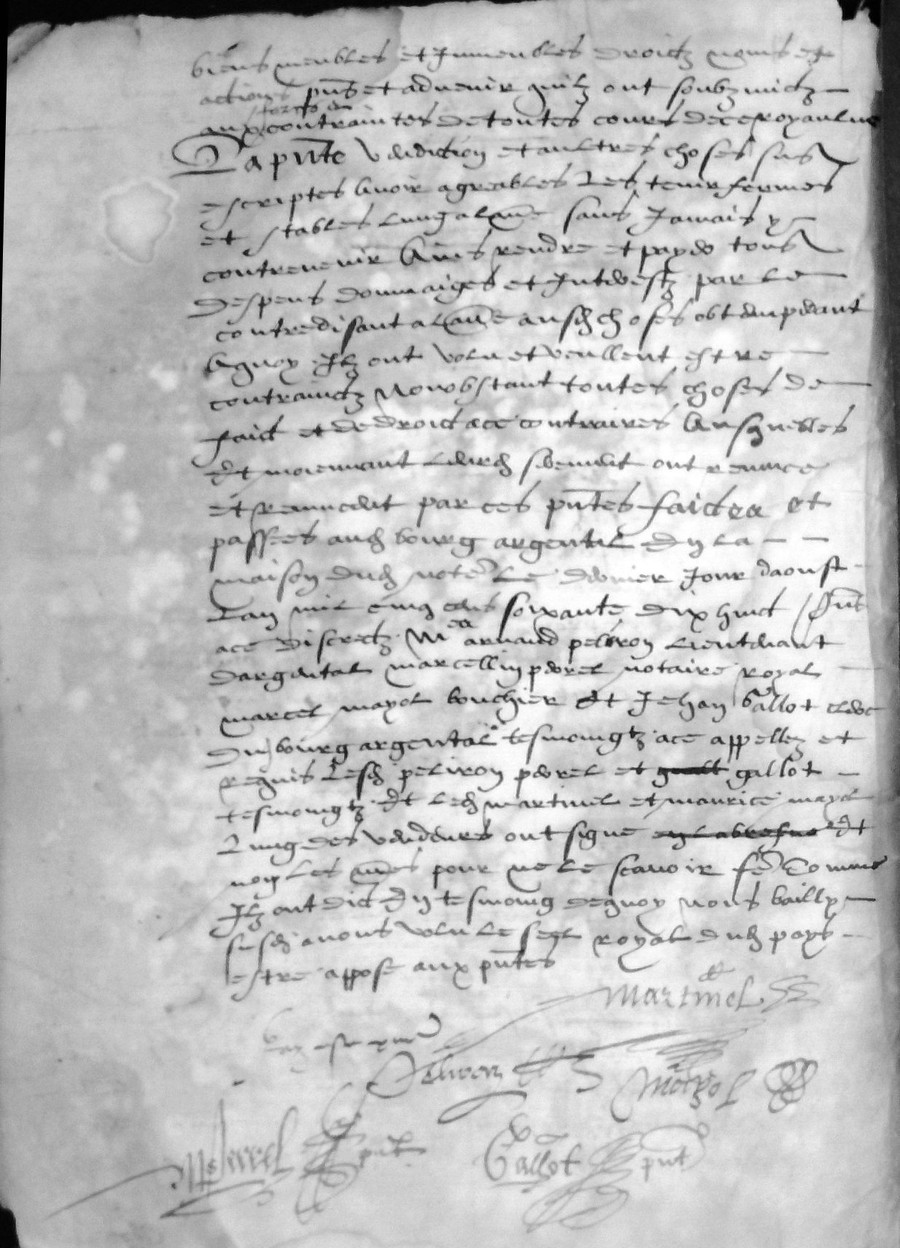 biens meubles et Immeubles droictz noms et
actions pñs et advenir quilz ont soubzmictz
aux contrainctes de toutes cours de ce royaulme
La pñte vendition et aultres choses sus
escriptes avoir agreables les tenir fermes
et stables lung a laue sans Jamais y
contrevenir Ains rendre et payer tous
despens dommaiges et Interestz par le
contredisant a laue ausd choses obtemperant
A quoy Ilz ont volu et veullent estre
contrainctz Nonobstant toutes choses de
faict et de droict a ce contraires Ausquelles
Et moienant led serement ont renonce
et renoncent par ces pñtes faictes et
passees aud bourg argental En la
maison dud notē Le dernier Jour daoust
Lan mil cinq cens soixante dix huict pñs
a ce discretz Mes arnaud peliron Lieutenant
dargental marcellin perrel notaire royal
marcel mayol bouchier Et Jehan Gallot clerc
du bourg argental tesmoingtz a ce appellez et
requis Lesd peliron perrel et gallot
tesmoingtz Et led martinel et maurice mayol
Lung des vendeurs ont signe Et
non les aues pour ne le scavoir fe Comme
Ilz ont dict En tesmoing de quoy nous bailly
susd avons volu le seel royal dud pays
estre appose aux pñtes
Martinel
Peliron
Mayol
M Perrel pñt
Gallot pñt